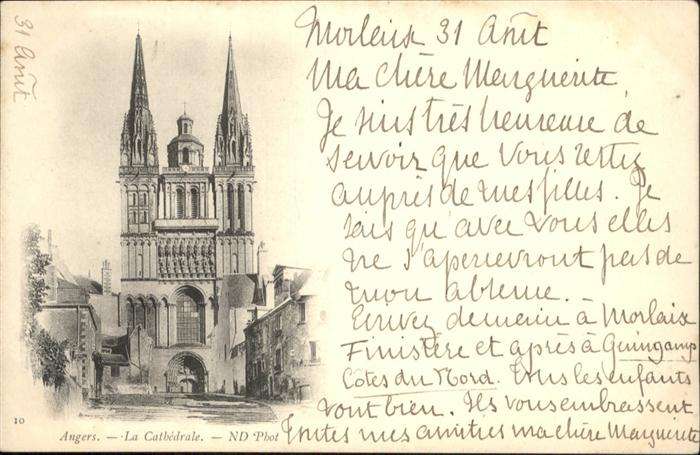 31 Août
Morlaix 31 Août
Ma chère Marguerite
Je suis très heureuse de
savoir que vous restez
auprès de mes filles. Je
sais qu'avec vous elles
ne s'apercevront pas de
mon absence. -
Ecrivez demain à Morlaix
Finistère et après à Guingamp
Côtes du Nord. Tous les enfants
vont bien. Ils vous embrassent
Toutes mes amitiés ma chère Marguerite
10
Angers. — La Cathédrale. — ND Phot